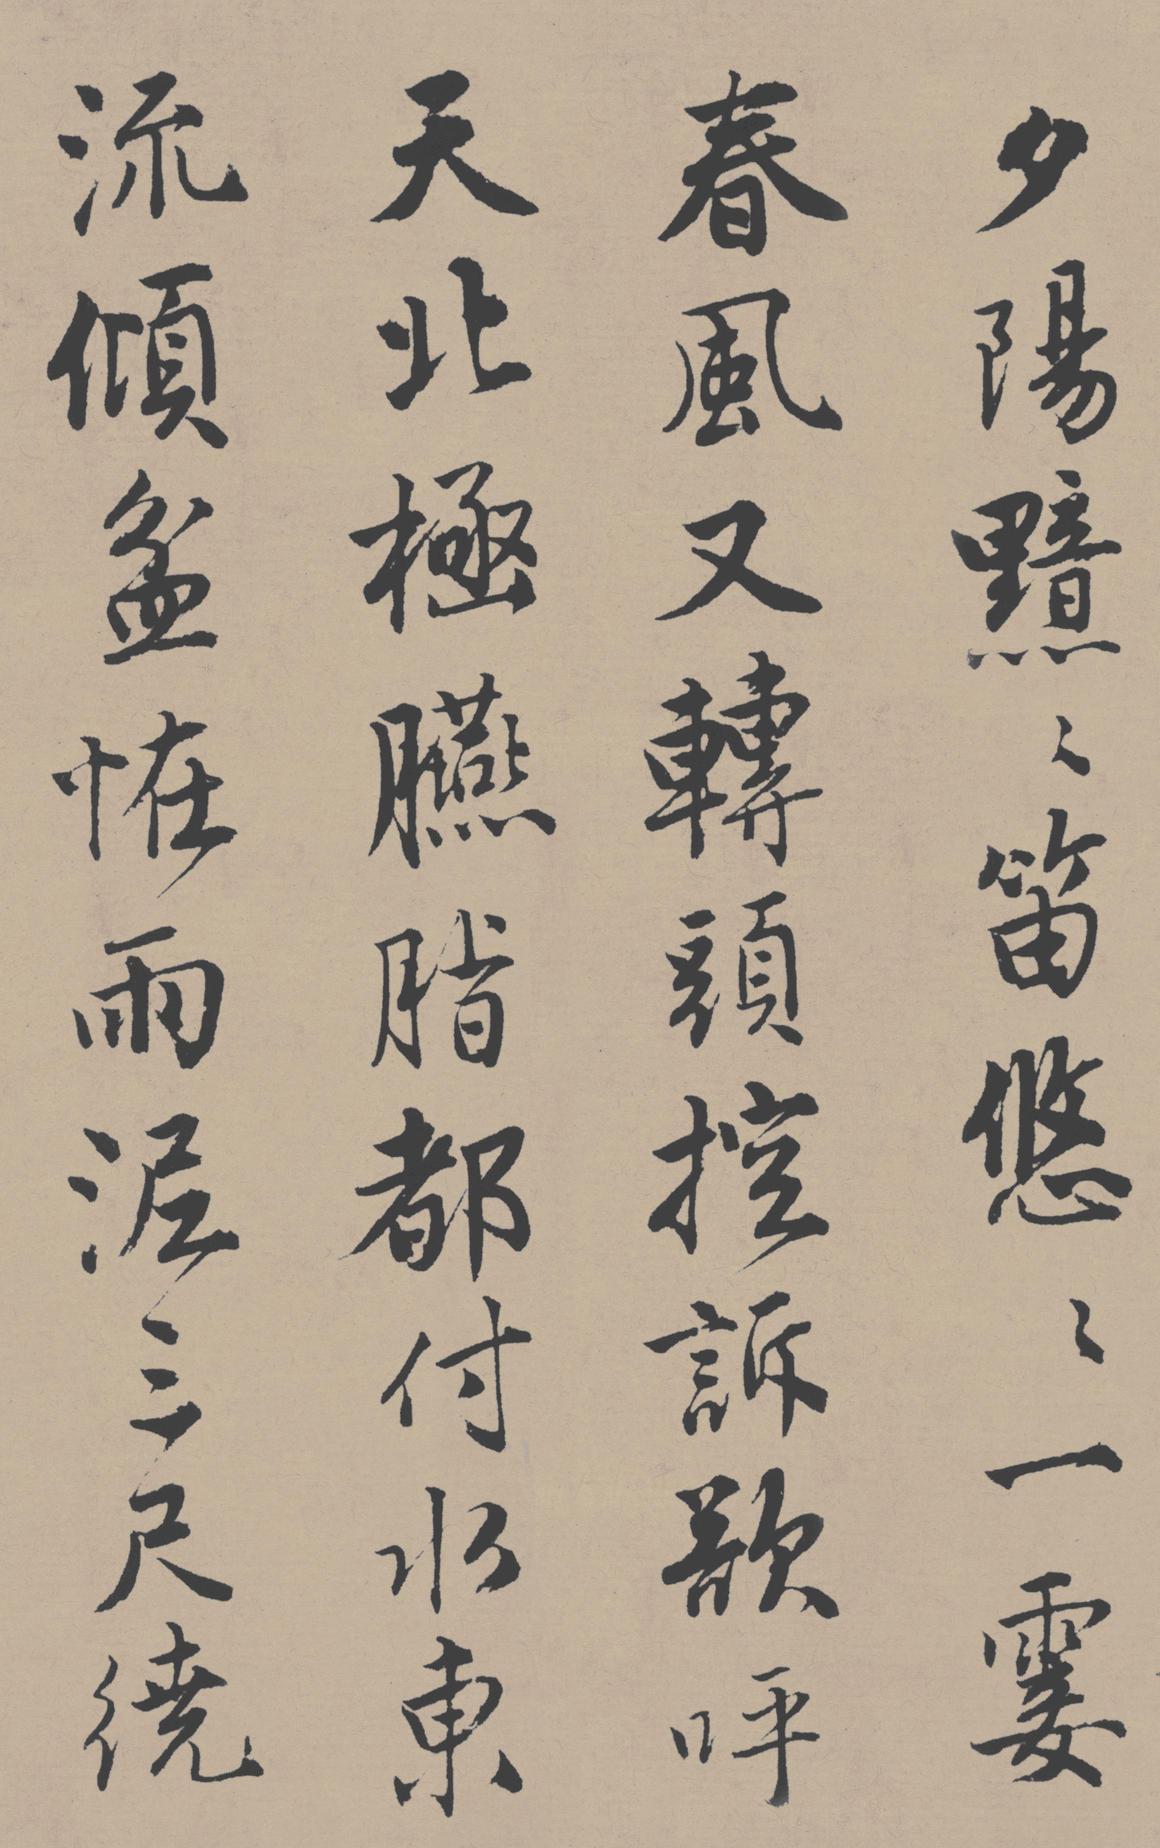 夕陽黯〻笛悠〻一霎
春風又轉頭控訴欲呼
天北極臙脂都付水東
流傾盆恠雨泥三尺繞